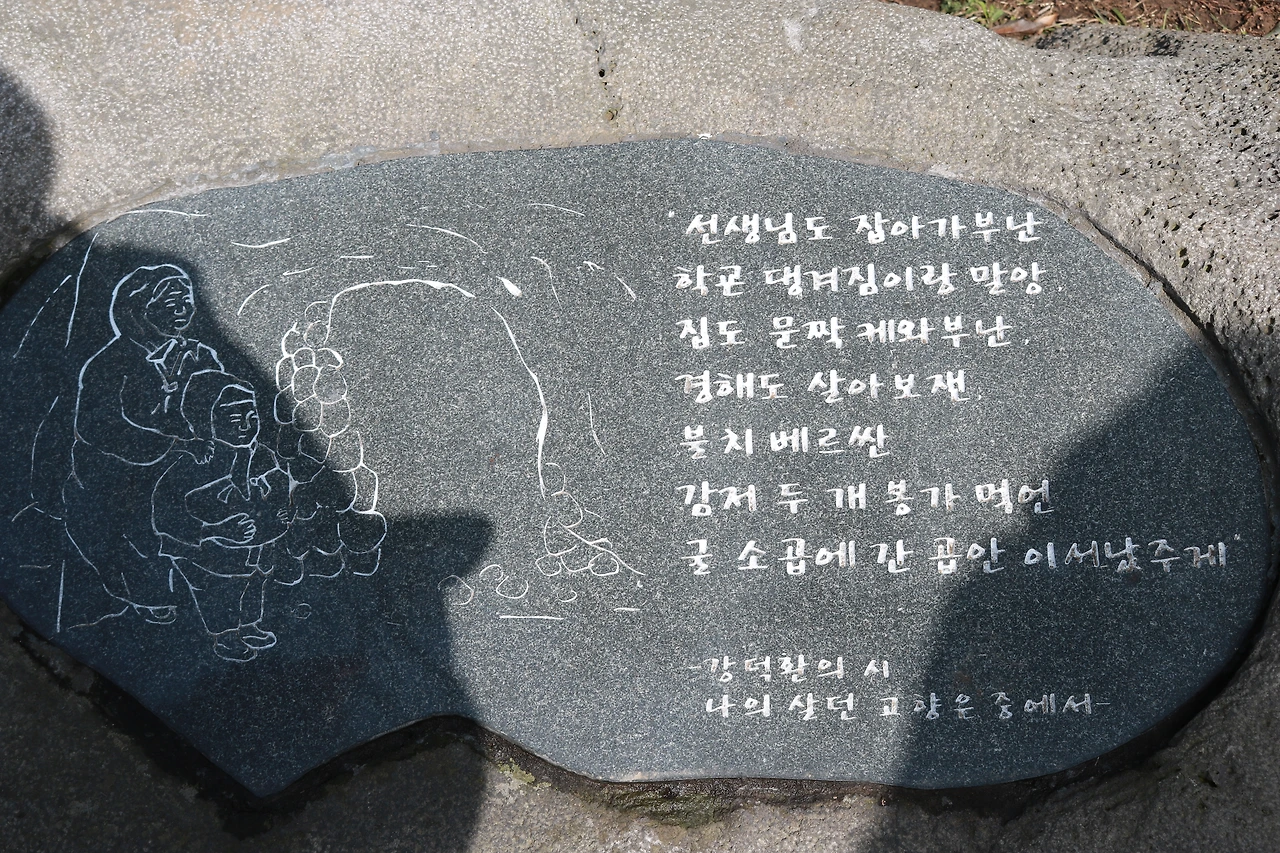 "선생님도 잡아가부난
학굔 댕겨짐이랑 말앙.
집도 문짝 케와부난,
경해도 살아보잰,
불치 베르싼
감저 두 개 봉가 먹언
굴 소곱에 간 곱안 이서났주게"
-강덕환의 시
나의 살던 고향은 중에서-